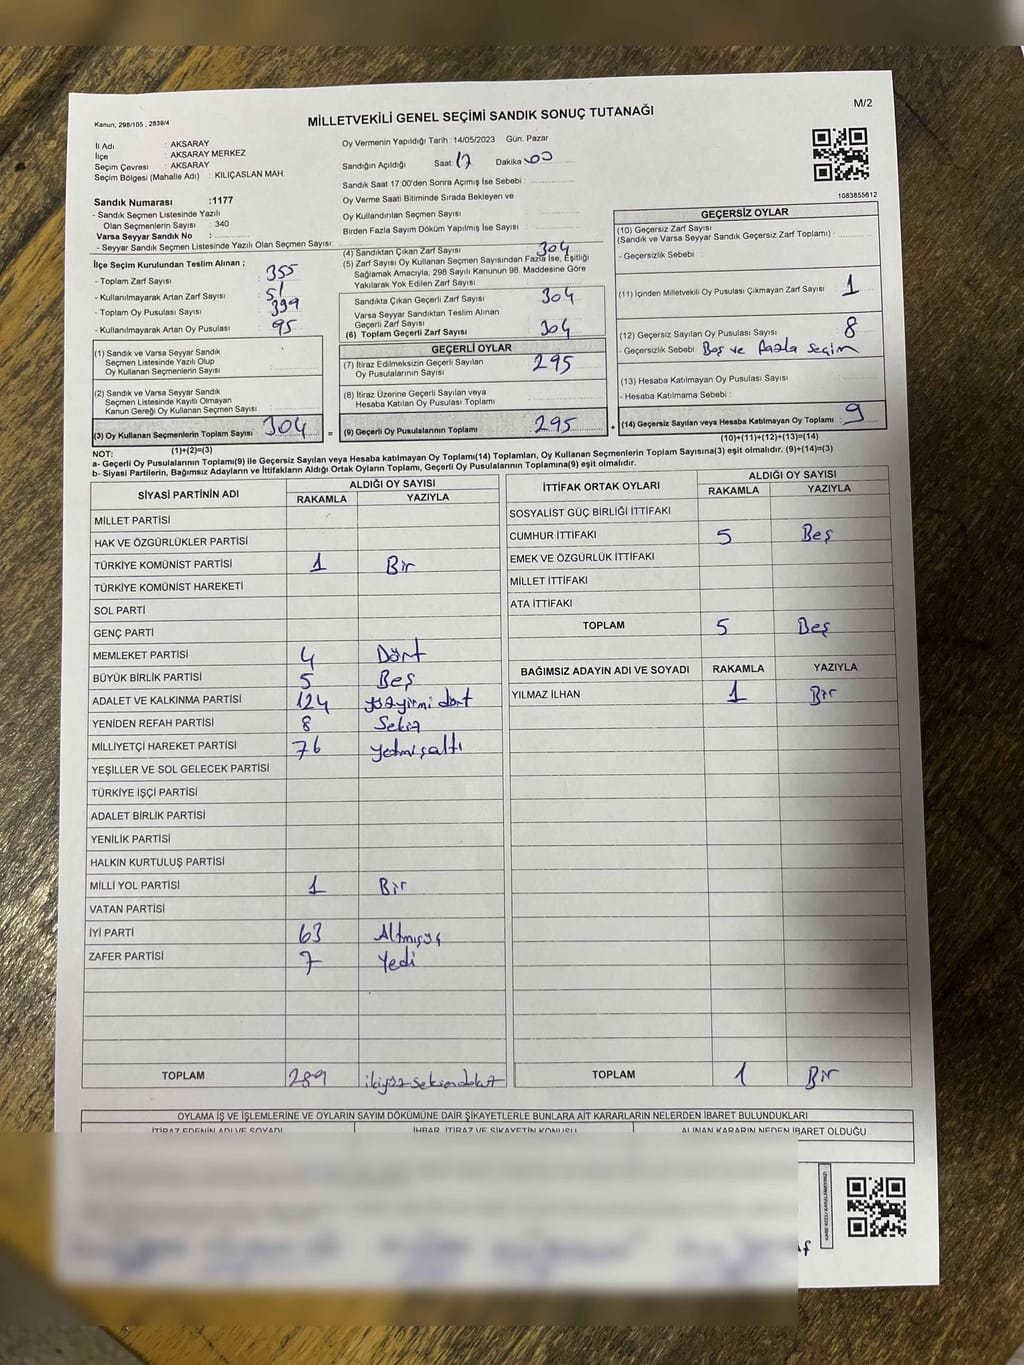 M/2
Kanun; 298/105 , 2839/4
MİLLETVEKİLİ GENEL SEÇİMİ SANDIK SONUÇ TUTANAĞI
İl Adı : AKSARAY
İlçe : AKSARAY MERKEZ
Seçim Çevresi : AKSARAY
Seçim Bölgesi (Mahalle Adı) : KILIÇASLAN MAH.
Sandık Numarası :1177
- Sandık Seçmen Listesinde Yazılı
Olan Seçmenlerin Sayısı : 340
Varsa Seyyar Sandık No :
- Seyyar Sandık Seçmen Listesinde Yazılı Olan Seçmen Sayısı:
Oy Vermenin Yapıldığı Tarih : 14/05/2023 Gün: Pazar
Sandığın Açıldığı Saat: 17 Dakika 00
Sandık Saat 17:00'den Sonra Açımış İse Sebebi :
Oy Verme Saati Bitiminde Sırada Bekleyen ve
Oy Kullandırılan Seçmen Sayısı
Birden Fazla Sayım Döküm Yapılmış İse Sayısı :
1083855612
İlçe Seçim Kurulundan Teslim Alınan ;
- Toplam Zarf Sayısı : 355
- Kullanılmayarak Artan Zarf Sayısı : 51
- Toplam Oy Pusulası Sayısı : 399
- Kullanılmayarak Artan Oy Pusulası : 95
(1) Sandık ve Varsa Seyyar Sandık
Seçmen Listesinde Yazılı Olup
Oy Kullanan Seçmenlerin Sayısı
(2) Sandık ve Varsa Seyyar Sandık
Seçmen Listesinde Kayıtlı Olmayan
Kanun Gereği Oy Kullanan Seçmen Sayısı
(3) Oy Kullanan Seçmenlerin Toplam Sayısı 304
(1)+(2)=(3)
(4) Sandıktan Çıkan Zarf Sayısı 304
(5) Zarf Sayısı Oy Kullanan Seçmen Sayısından Fazla İse, Eşitliği
Sağlamak Amacıyla; 298 Sayılı Kanunun 98. Maddesine Göre
Yakılarak Yok Edilen Zarf Sayısı :
Sandıkta Çıkan Geçerli Zarf Sayısı 304
Varsa Seyyar Sandıktan Teslim Alınan
Geçerli Zarf Sayısı
(6) Toplam Geçerli Zarf Sayısı 304
GEÇERLİ OYLAR
(7) İtiraz Edilmeksizin Geçerli Sayılan
Oy Pusulalarının Sayısı 295
(8) İtiraz Üzerine Geçerli Sayılan veya
Hesaba Katılan Oy Pusulası Toplamı
= (9) Geçerli Oy Pusulalarının Toplamı : 295 +
GEÇERSİZ OYLAR
(10) Geçersiz Zarf Sayısı
(Sandık ve Varsa Seyyar Sandık Geçersiz Zarf Toplamı) :
- Geçersizlik Sebebi :
(11) İçinden Milletvekili Oy Pusulası Çıkmayan Zarf Sayısı 1
(12) Geçersiz Sayılan Oy Pusulası Sayısı 8
- Geçersizlik Sebebi : Boş ve fazla seçim
(13) Hesaba Katılmayan Oy Pusulası Sayısı
- Hesaba Katılmama Sebebi :
(14) Geçersiz Sayılan veya Hesaba Katılmayan Oy Toplamı : 9
(10)+(11)+(12)+(13)=(14)
NOT:
a- Geçerli Oy Pusulalarının Toplamı(9) ile Geçersiz Sayılan veya Hesaba katılmayan Oy Toplamı(14) Toplamları, Oy Kullanan Seçmenlerin Toplam Sayısına(3) eşit olmalıdır. (9)+(14)=(3)
b- Siyasi Partilerin, Bağımsız Adayların ve İttifakların Aldığı Ortak Oyların Toplamı, Geçerli Oy Pusulalarının Toplamına(9) eşit olmalıdır.
SİYASİ PARTİNİN ADI ALDIĞI OY SAYISI
RAKAMLA YAZIYLA
MİLLET PARTİSİ
HAK VE ÖZGÜRLÜKLER PARTİSİ
TÜRKİYE KOMÜNİST PARTİSİ 1 Bir
TÜRKİYE KOMÜNİST HAREKETİ
SOL PARTİ
GENÇ PARTİ
MEMLEKET PARTİSİ 4 Dört
BÜYÜK BİRLİK PARTİSİ 5 Beş
ADALET VE KALKINMA PARTİSİ 124 yüzyirmi dört
YENİDEN REFAH PARTİSİ 8 Sekiz
MİLLİYETÇİ HAREKET PARTİSİ 76 yetmişaltı
YEŞİLLER VE SOL GELECEK PARTİSİ
TÜRKİYE İŞÇİ PARTİSİ
ADALET BİRLİK PARTİSİ
YENİLİK PARTİSİ
HALKIN KURTULUŞ PARTİSİ
MİLLİ YOL PARTİSİ 1 Bir
VATAN PARTİSİ
İYİ PARTİ 63 Altmışüç
ZAFER PARTİSİ 7 Yedi
TOPLAM 289 ikiyüzseksendokuz
İTTİFAK ORTAK OYLARI ALDIĞI OY SAYISI
RAKAMLA YAZIYLA
SOSYALİST GÜÇ BİRLİĞİ İTTİFAKI
CUMHUR İTTİFAKI 5 Beş
EMEK VE ÖZGÜRLÜK İTTİFAKI
MİLLET İTTİFAKI
ATA İTTİFAKI
TOPLAM 5 Beş
BAĞIMSIZ ADAYIN ADI VE SOYADI RAKAMLA YAZIYLA
YILMAZ İLHAN 1 Bir
TOPLAM 1 Bir
OYLAMA İŞ VE İŞLEMLERİNE VE OYLARIN SAYIM DÖKÜMÜNE DAİR ŞİKAYETLERLE BUNLARA AİT KARARLARIN NELERDEN İBARET BULUNDUKLARI
İTİRAZ EDENİN ADI VE SOYADI İHBAR, İTİRAZ VE ŞİKAYETİN KONUSU ALINAN KARARIN NEDEN İBARET OLDUĞU